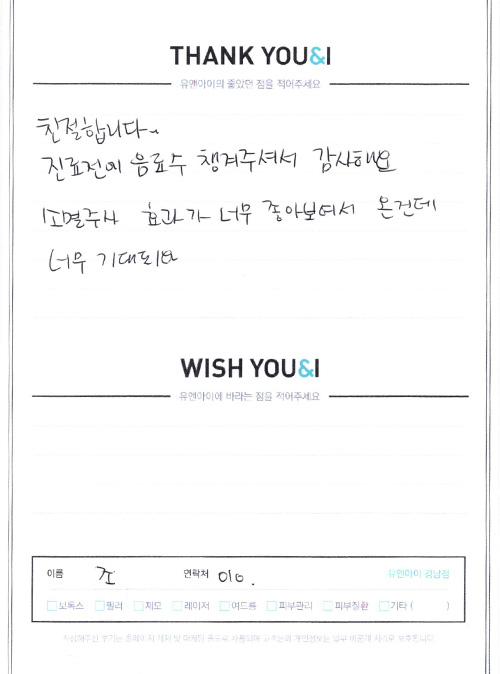 THANK YOU&I
유앤아이의 좋았던 점을 적어주세요
친절합니다~
진료전에 음료수 챙겨주셔서 감사해요
소멸주사 효과가 너무 좋아보여서 온건데
너무 기대되요
WISH YOU&I
유앤아이에 바라는 점을 적어주세요
이름 조 연락처 010. 유앤아이 강남점
보톡스 필러 제모 레이저 여드름 피부관리 피부질환 기타 ( )
작성해주신 후기는 홈페이지 게재 및 마케팅 용도로 사용되며 고객님의 개인정보는 일부 비공개 처리로 보호됩니다.